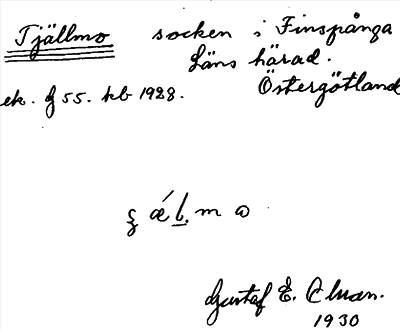 Tjällmo socken i Finspånga
Läns härad.
ek. G 55. kb 1928. Östergötland
m
Gustaf E.
1930